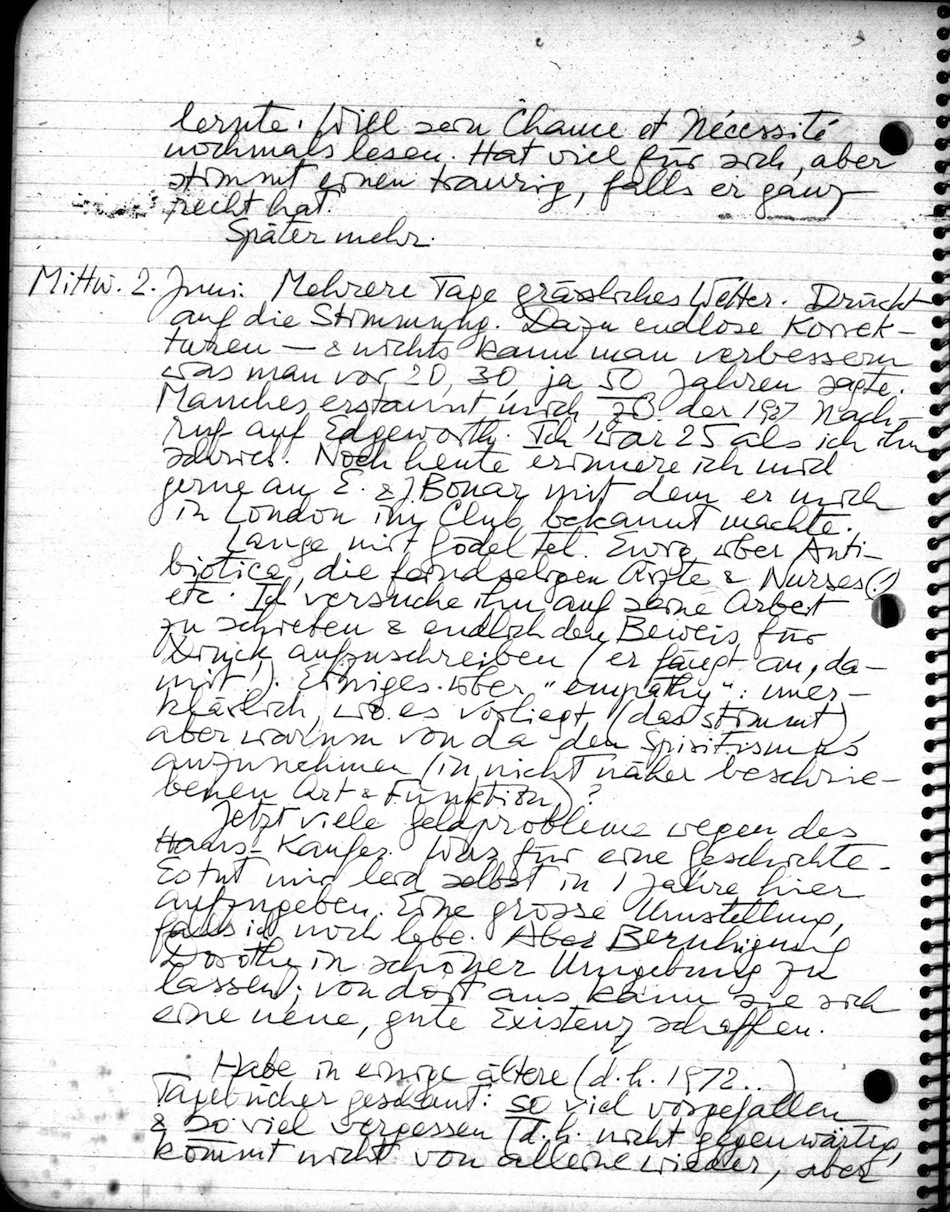 lernte. Will sein Chance et Nécessité
nochmals lesen. Hat viel für sich, aber
stimmt einen traurig, falls er ganz
recht hat.
Später mehr.
Mittw. 2. Juni. Mehrere Tage grässliches Wetter. Drückt
auf die Stimmung. Dazu endlose Korrek-
turen — & nichts kann man verbessern
was man vor 20, 30, ja 50 Jahren sagte.
Manches erstaunt mich zB der 1927 Nach-
ruf auf Edgeworth. Ich war 25 als ich ihn
schrieb. Noch heute erinnere ich mich
gerne an E. & J Bonar mit dem er mich
in London im Club bekannt machte.
Lange mit Gödel tel. Ewig über Anti-
biotica, die feindseligen Ärzte & Nurses (!)
etc. Ich versuche ihn auf seine Arbeit
zu schieben & endlich den Beweis für
Druck aufzuschreiben (er fängt an, da-
mit!). Einiges über "empathy": uner-
klärlich, wo es vorliegt (das stimmt)
aber warum von da den Spiritismus
anzunehmen (in nicht näher beschrie-
benen Art & Funktion)?
Jetzt viele Geldprobleme wegen des
Haus-Kaufes. Was für eine Geschichte.
Es tut mir leid selbst in 1 Jahre hier
aufzugeben. Eine grosse Umstellung,
falls ich noch lebe. Aber Beruhigung
Dorothy in schöner Umgebung zu
lassen; von dort aus kann sie sich
eine neue, gute Existenz schaffen.
Habe in einige ältere (d.h. 1972..)
Tagebücher geschaut: so viel vorgefallen
& so viel vergessen (d.h. nicht gegenwärtig,
kommt nicht von alleine wieder, aber